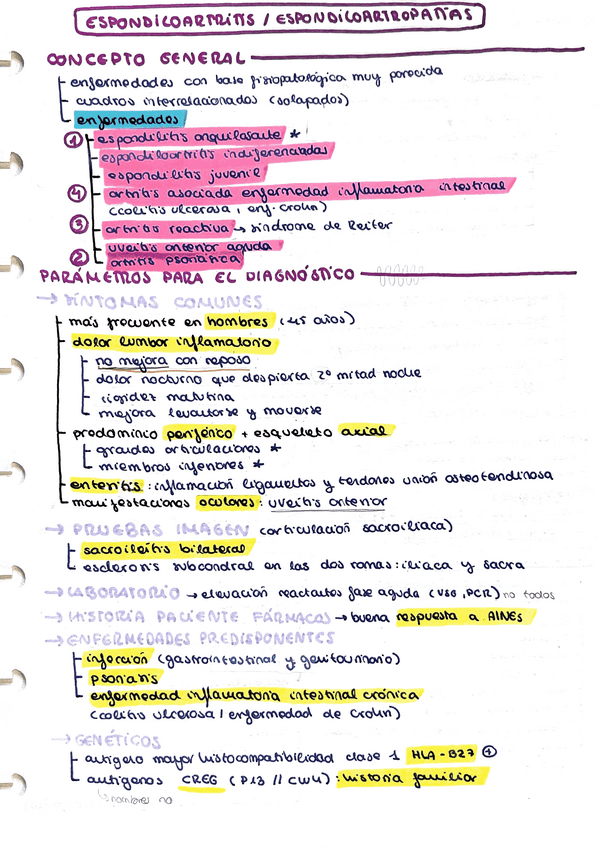 ESPONDILOARTRITIS / ESPONDILOARTROPATÍAS
CONCEPTO GENERAL
enfermedades con base fisiopatológica muy parecida
cuadros interrelacionados (solapados)
enfermedades
① espondilitis anquilosante *
espondiloartritis indiferenciadas
espondilitis juvenil
④ artritis asociada enfermedad inflamatoria intestinal
(colitis ulcerosa, enf. crohn)
③ artritis reactiva → síndrome de Reiter
uveítis anterior aguda
② artritis psoriásica
PARÁMETROS PARA EL DIAGNÓSTICO
→ SÍNTOMAS COMUNES
más frecuente en hombres (45 años)
dolor lumbar inflamatorio
no mejora con reposo
dolor nocturno que despierta 2ª mitad noche
rigidez matutina
mejora levantarse y moverse
predominio periférico + esqueleto axial
grandes articulaciones *
miembros inferiores *
entesitis: inflamación ligamentos y tendones unión osteotendinosa
manifestaciones oculares: uveítis anterior
→ PRUEBAS IMAGEN (articulación sacroilíaca)
sacroileítis bilateral
esclerosis subcondral en las dos ramas: ilíaca y sacra
→ LABORATORIO → elevación reactantes fase aguda (VSG, PCR) no todos
→ HISTORIA PACIENTE FÁRMACOS → buena respuesta a AINEs
→ ENFERMEDADES PREDISPONENTES
infección (gastrointestinal y genitourinario)
psoriasis
enfermedad inflamatoria intestinal crónica
(colitis ulcerosa / enfermedad de Crohn)
→ GENÉTICOS
antígeno mayor histocompatibilidad clase 1 HLA-B27 ⊕
antígenos CREG (P13 // CW4): historia familiar
nombres no